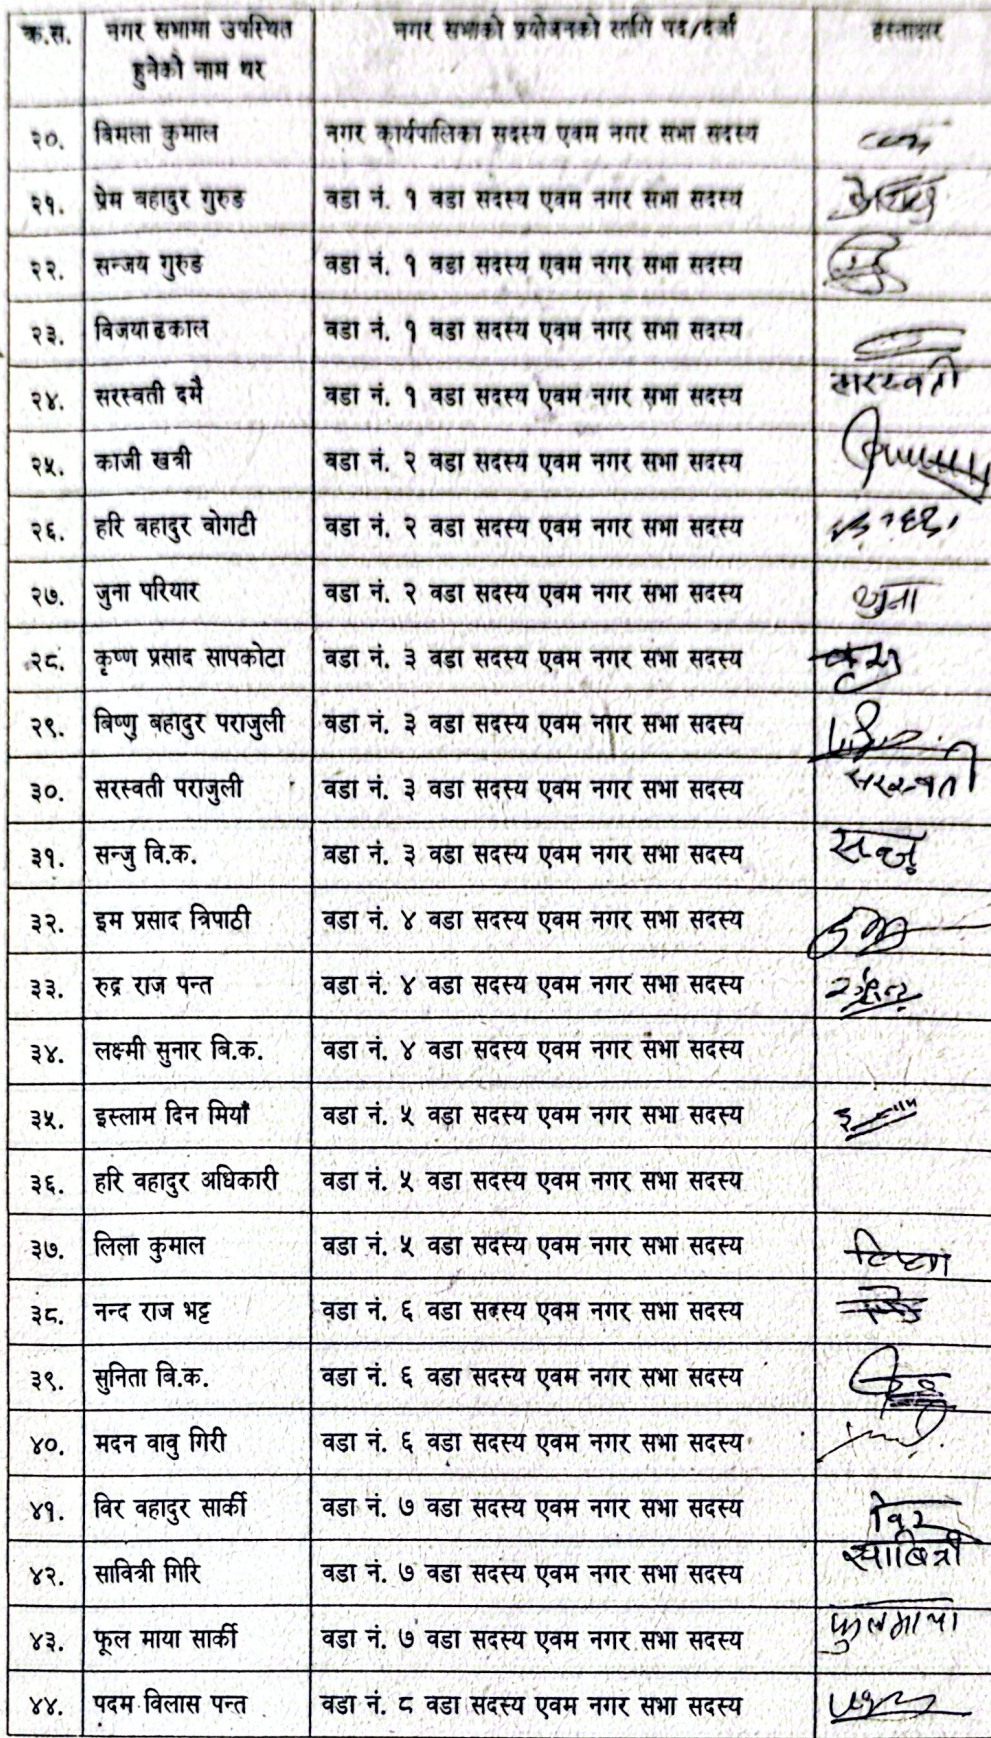 क्र.स. नगर सभामा उपस्थित नगर सभाको प्रयोजनको लागि पद/दर्जा हस्ताक्षर
हुनेको नाम थर
२०. बिमला कुमाल नगर कार्यपालिका सदस्य एवम नगर सभा सदस्य
२१. प्रेम बहादुर गुरुङ वडा नं. १ वडा सदस्य एवम नगर सभा सदस्य
२२. सन्जय गुरुङ वडा नं. १ वडा सदस्य एवम नगर सभा सदस्य
२३. विजया ढकाल वडा नं. १ वडा सदस्य एवम नगर सभा सदस्य
२४. सरस्वती दमै वडा नं. १ वडा सदस्य एवम नगर सभा सदस्य सारस्वती
२५. काजी खत्री वडा नं. २ वडा सदस्य एवम नगर सभा सदस्य
२६. हरि वहादुर वोगटी वडा नं. २ वडा सदस्य एवम नगर सभा सदस्य
२७. जुना परियार वडा नं. २ वडा सदस्य एवम नगर सभा सदस्य जुना
२८. कृष्ण प्रसाद सापकोटा वडा नं. ३ वडा सदस्य एवम नगर सभा सदस्य
२९. बिष्णु बहादुर पराजुली वडा नं. ३ वडा सदस्य एवम नगर सभा सदस्य
३०. सरस्वती पराजुली वडा नं. ३ वडा सदस्य एवम नगर सभा सदस्य सरस्वती
३१. सन्जु वि.क. वडा नं. ३ वडा सदस्य एवम नगर सभा सदस्य सन्जु
३२. इम प्रसाद त्रिपाठी वडा नं. ४ वडा सदस्य एवम नगर सभा सदस्य
३३. रुद्र राज पन्त वडा नं. ४ वडा सदस्य एवम नगर सभा सदस्य
३४. लक्ष्मी सुनार बि.क. वडा नं. ४ वडा सदस्य एवम नगर सभा सदस्य
३५. इस्लाम दिन मियाँ वडा नं. ५ वडा सदस्य एवम नगर सभा सदस्य
३६. हरि वहादुर अधिकारी वडा नं. ५ वडा सदस्य एवम नगर सभा सदस्य
३७. लिला कुमाल वडा नं. ५ वडा सदस्य एवम नगर सभा सदस्य
३८. नन्द राज भट्ट वडा नं. ६ वडा सदस्य एवम नगर सभा सदस्य
३९. सुनिता वि.क. वडा नं. ६ वडा सदस्य एवम नगर सभा सदस्य
४०. मदन वावु गिरी वडा नं. ६ वडा सदस्य एवम नगर सभा सदस्य
४१. विर वहादुर सार्की वडा नं. ७ वडा सदस्य एवम नगर सभा सदस्य विर
४२. सावित्री गिरि वडा नं. ७ वडा सदस्य एवम नगर सभा सदस्य साबित्री
४३. फूल माया सार्की वडा नं. ७ वडा सदस्य एवम नगर सभा सदस्य फुलमाया
४४. पदम विलास पन्त वडा नं. ८ वडा सदस्य एवम नगर सभा सदस्य